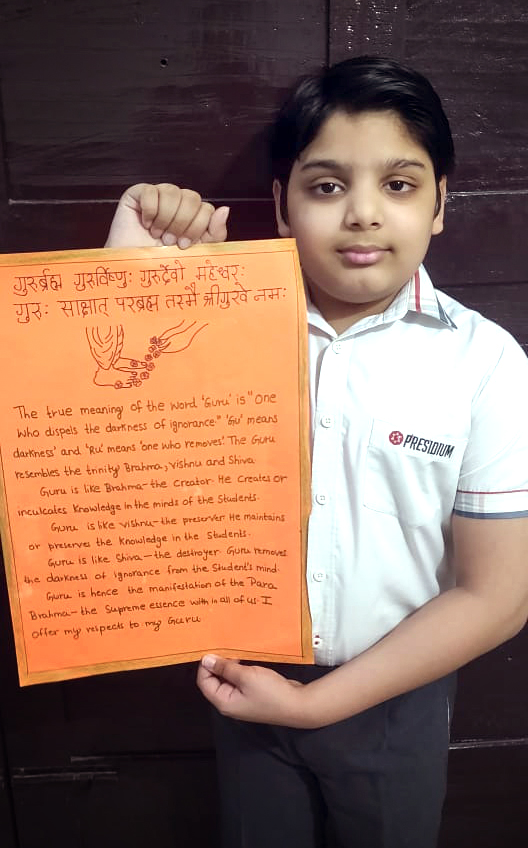 गुरुर्ब्रह्म गुरुर्विष्णुः गुरुर्देवो महेश्वरः
गुरुः साक्षात् परब्रह्म तस्मै श्रीगुरवे नमः
The true meaning of the word 'Guru' is "One
who dispels the darkness of ignorance." 'Gu' means
darkness' and 'Ru' means 'one who removes'. The Guru
resembles the trinity Brahma, vishnu and Shiva
Guru is like Brahma-the creator. He creates or
inculcates knowledge in the minds of the Students.
Guru is like vishnu-the preserver. He maintains
or preserves the knowledge in the Students.
Guru is like Shiva-the destroyer. Guru removes
the darkness of ignorance from the Student's mind.
Guru is hence the manifestation of the Para
Brahma-the Supreme essence with in all of us. I
offer my respects to my Guru
PRESIDIUM